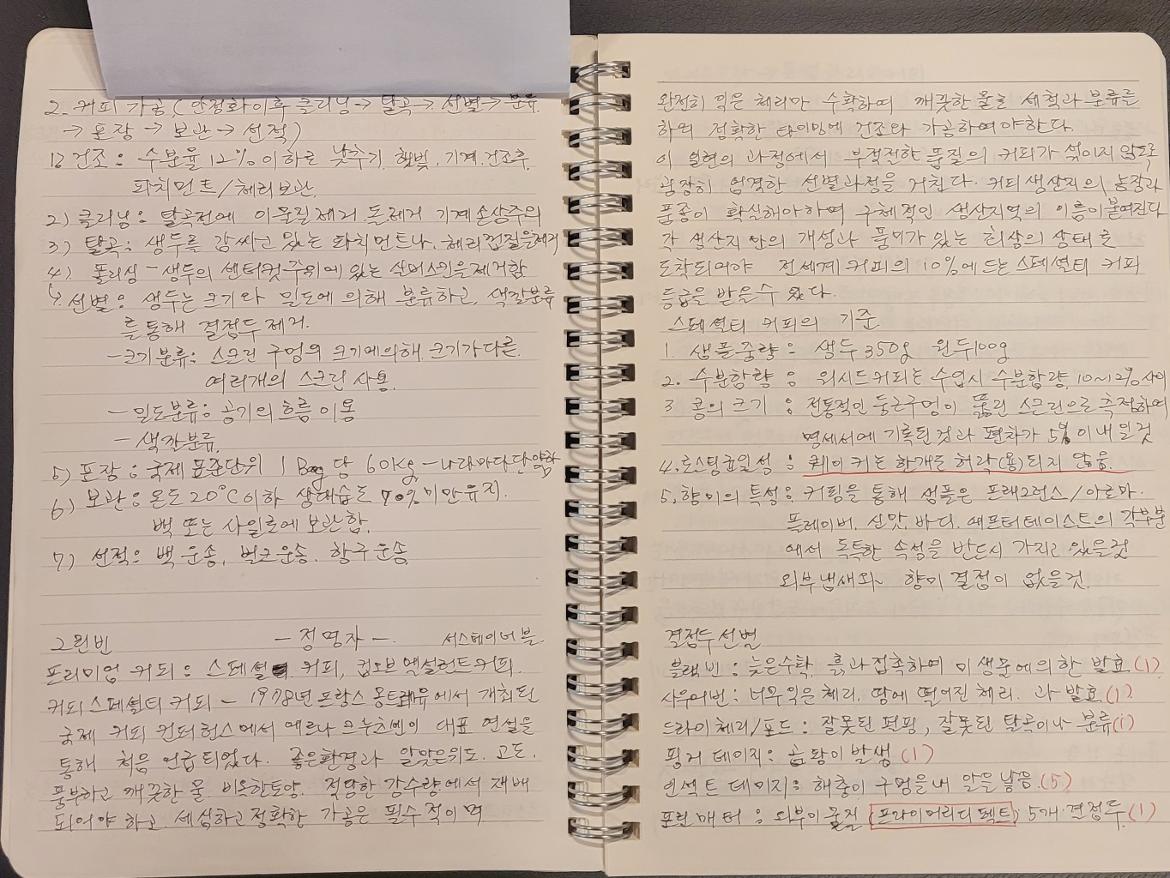 2. 커피 가공 (안정화 이후 클리닝 → 탈곡 → 선별 → 분류
→ 포장 → 보관 → 선적)
1) 건조 : 수분율 12% 이하로 낮추기. 햇빛, 기계. 건조후
파치먼트/체리보관.
2) 클리닝 : 탈곡전에 이물질제거 돌제거 기계손상주의
3) 탈곡 : 생두를 감싸고 있는 파치먼트나, 체리껍질을제거
4) 폴리싱 - 생두의 센터컷주위에 있는 실버스킨을제거함
선별 : 생두는 크기와 밀도에 의해 분류하고, 색깔분류
를 통해 결점두 제거.
- 크기분류 : 스크린 구멍의 크기에의해. 크기가다른.
여러개의 스크린 사용.
- 밀도분류 : 공기의 흐름 이용
- 색깔분류.
5) 포장 : 국제 표준단위 1 Bag 당 60kg - 나라마다단
6) 보관 : 온도 20°C이하 상대습도 70%미만유지.
백 또는 사일로에 보관함.
7) 선적 : 백 운송, 벌크운송. 항구운송
그린빈 - 정명자 -. 서스테이너블.
프리미엄 커피 : 스페셜 커피, 컵오브엑설런트커피.
커피스페셜티 커피 - 1978년 프랑스 몽트레유에서 개최된
국제 커피 컨퍼런스에서 에르나 크누츠엔이 대표 연설을
통해 처음 언급되었다. 좋은환경과 알맞은위도. 고도.
풍부하고 깨끗한 물 비옥한토양. 적당한 강수량에서 재배
되어야 하고. 세심하고정확한 가공은 필수적이며
완전히 익은 체리만 수확하여 깨끗한 물로 세척과 분류를
하의 정확한 타이밍에 건조와 가공하여야한다.
이 일련의 과정에서 부적전한 품질의 커피가 섞이지 않도록
굉장히 엄격한 선별과정을 거친다. 커피 생산지의 농장과
품종이 확실해야하며 구체적인 생산지역의 이름이붙여진다
각 생산지 만의 개성과 풍미가 있는 최상의 상태로
도착되어야 전세계 커피의 10%에 드는 스페셜티 커피
등급을 받을수 있다.
스페셜티 커피의 기준
1. 샘플중량 : 생두 350g 원두100g
2. 수분함량 : 워시드커피는 수입시 수분함량 10~12% 사이
3 콩의 크기 : 전통적인 둥근구멍이 뚫린 스크린으로 측정하여
명세서에 기록된것과 편차가 5% 이내일것
4. 로스팅균일성 : 퀘이커는 한개도 허락(용)되지 않음.
5. 향미의 특성 : 커핑을 통해 샘플은 프래그런스/아로마.
플레이버. 신맛. 바디. 애프터테이스트의 각부분
에서 독특한 속성을 반드시 가지고 있을것
외부냄새와 향미 결점이 없을것.
결점두선별
블랙빈 : 늦은수확, 흙과접촉하여 미생물에의한 발효.(1)
사우어빈 : 너무익은체리. 땅에 떨어진 체리. 과 발효.(1)
드라이체리/포드 : 잘못된 펄핑, 잘못된 탈곡이나 분류(1)
펑거 데미지 : 곰팡이 발생 (1)
인섹트 데미지 : 해충이 구멍을내 알을 낳음.(5)
포린매터 : 외부이물질 (프라이머리디펙트) 5개 결점두.(1)